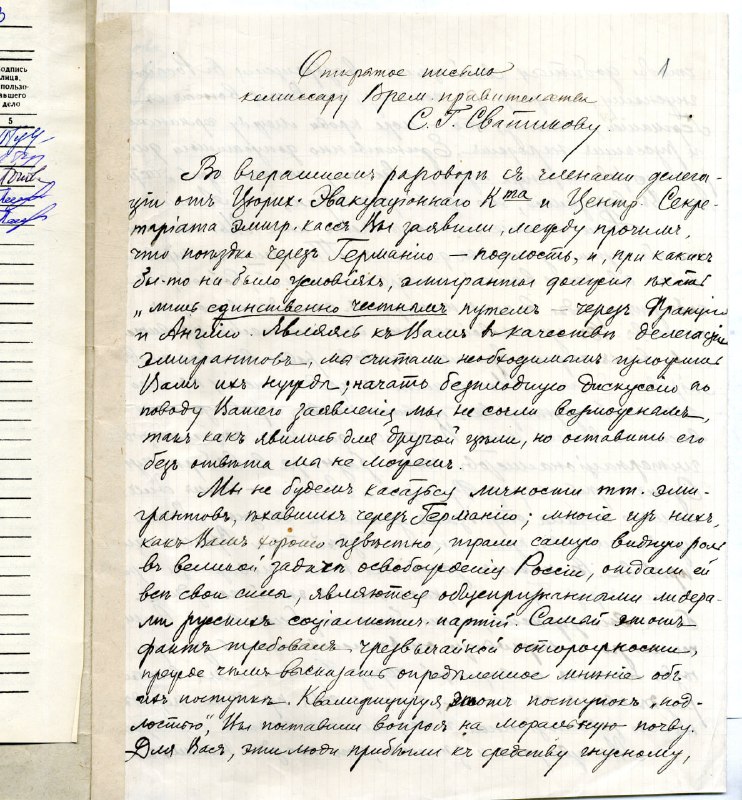 3
одпись
лица,
пользо-
вшего
дело
5
1
Открытое письмо
комиссару Врем. правительства
С. Г. Сватикову.
Во вчерашнемъ разговорѣ съ членами делега-
ціи отъ Цюрих. Эвакуаціоннаго Кта и Центр. Секре-
таріата эмигр. кассъ Вы заявили, между прочимъ,
что поѣздка черезъ Германію — подлость, и, при какихъ
бы-то ни было условіяхъ, эмигранты должны ѣхать
„лишь единственно честнымъ путемъ — черезъ Францію
и Англію. Являясь къ Вамъ въ качествѣ делегаціи
эмигрантовъ, мы считали необходимымъ изложить
Вамъ ихъ нужды; начать безплодную дискуссію по
поводу Вашего заявленія мы не сочли возможнымъ,
такъ какъ явились для другой цѣли, но оставить его
безъ отвѣта мы не можемъ.
Мы не будемъ касаться личности тт. эми-
грантовъ, ѣхавшихъ черезъ Германію; многіе изъ нихъ,
какъ Вамъ хорошо извѣстно, играли самую видную роль
въ великой задачѣ освобожденія Россіи, отдали ей
всѣ свои силы, являются общепризнанными лидера-
ми русскихъ соціалистич. партій. Самый этотъ
фактъ требовалъ чрезвычайной осторожности,
прежде чѣмъ высказать опредѣленное мнѣніе объ
ихъ поступкѣ. Квалифицируя этотъ поступокъ „под-
лостью", Вы поставили вопросъ на моральную почву.
Для Васъ, эти люди прибѣгли къ средству гнусному,